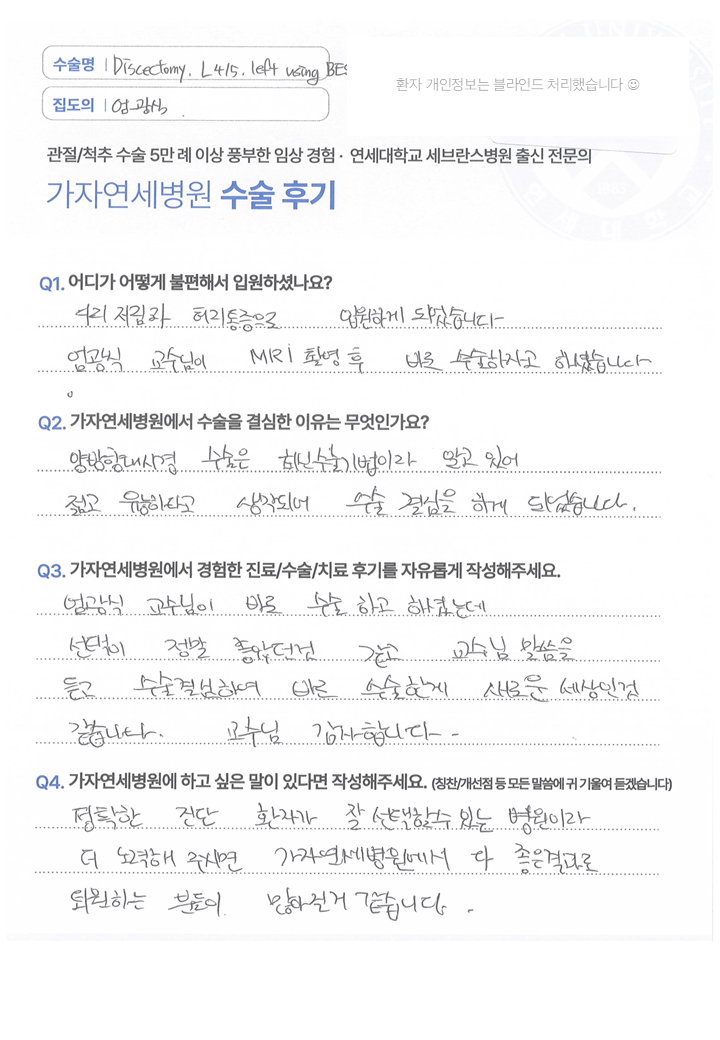 수술명 | Discectomy. L4/5. left using BES
환자 개인정보는 블라인드 처리했습니다 ☺
집도의 | 엄광식
관절/척추 수술 5만 례 이상 풍부한 임상 경험 · 연세대학교 세브란스병원 출신 전문의
가자연세병원 수술 후기
Q1. 어디가 어떻게 불편해서 입원하셨나요?
다리 저림과 허리통증으로 입원하게 되었습니다
엄광식 교수님이 MRI 촬영 후 바로 수술하자고 하셨습니다
Q2. 가자연세병원에서 수술을 결심한 이유는 무엇인가요?
양방향내시경 수술은 최신수술기법이라 알고 있어
젊고 유능하다고 생각되어 수술 결심을 하게 되었습니다.
Q3. 가자연세병원에서 경험한 진료/수술/치료 후기를 자유롭게 작성해주세요.
엄광식 교수님이 바로 수술 하고 하셨는데
선택이 정말 좋았던건 같고 교수님 말씀을
듣고 수술결심하여 바로 수술한게 새로운 세상인것
같습니다. 교수님 감사합니다.
Q4. 가자연세병원에 하고 싶은 말이 있다면 작성해주세요. (칭찬/개선점 등 모든 말씀에 귀 기울여 듣겠습니다)
정확한 진단 환자가 잘 선택할수 있는 병원이라
더 노력해 주시면 가자연세병원에서 다 좋은결과로
퇴원하는 분들이 많아질거 같습니다.